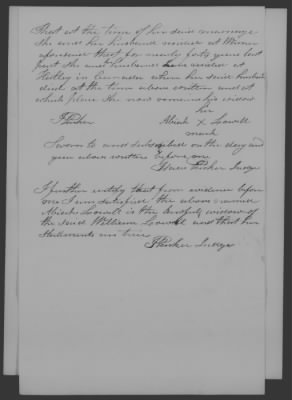 That at the time of her said marriage
she and her husband resided at Warner
aforesaid that for nearly forty years last
past she and husband have resided at
Hatley in Canada where her said husband
died at the time above written and at
which place she now remains his widow
her
J Parker Abiah X Lowell
mark
Sworn to and subscribed on the day and
year above written before me
Parker Judge
I further certify that from evidence before
me I am satisfied the above named
Abiah Lowell is the lawful widow of
the said William Lowell and that her
statements are true
J Parker Judge